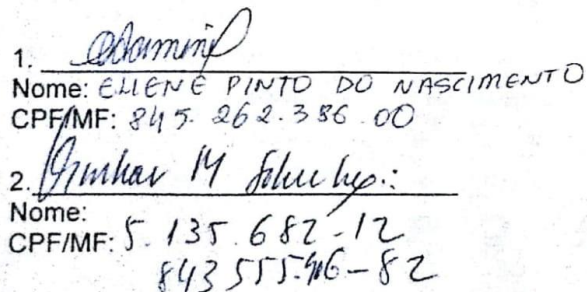 1.
Nome: ELIENE PINTO DO NASCIMENTO
CPF/MF: 845.262.386.00
2.
Nome:
CPF/MF: 5.135.682-12
843555.-82